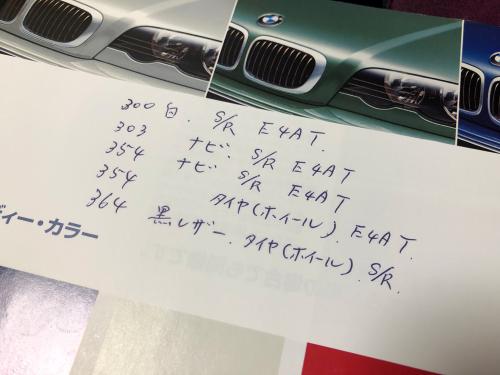 300 白. S/R E4AT.
303 ナビ. S/R E4AT
354 ナビ S/R E4AT
354 タイヤ(ホイール). E4AT.
364 黒レザー. タイヤ(ホイール). S/R.
ディー・カラー